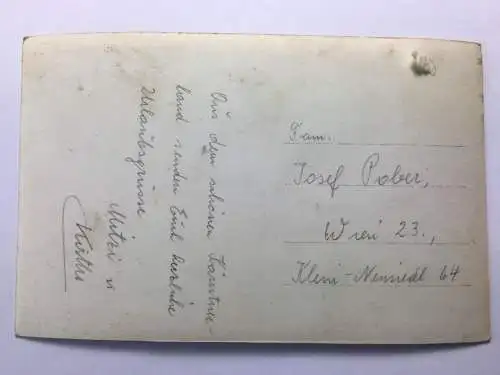 Aus dem schönen Kärntner-
land senden Euch herzliche
Urlaubsgrüsse
Mitzi u
Käthe
Fam.
Josef Pober,
Wien 23.,
Klein-Neusiedl 64